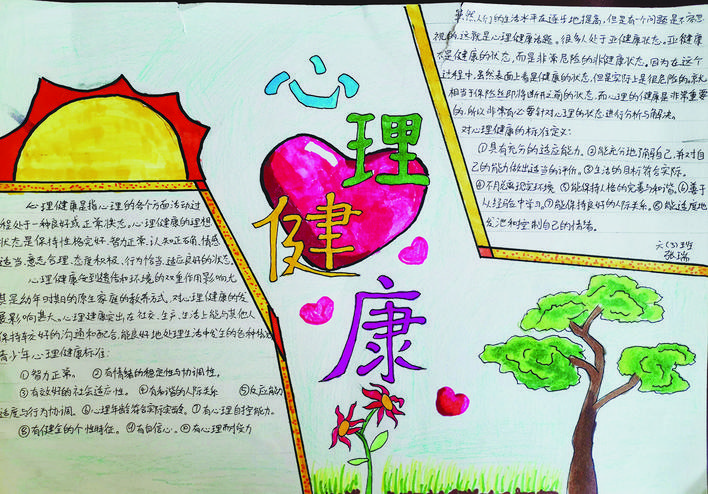 心理健康
心理健康是指心理的各个方面活动过
程处于一种良好或正常状态。心理健康的理想
状态是保持性格完好、智力正常、认知正确、情感
适当、意志合理、态度积极、行为恰当、适应良好的状态。
心理健康受到遗传和环境的双重作用影响尤
其是幼年时期的原生家庭的教养方式，对心理健康的发
展影响甚大。心理健康突出在社交、生产、生活上能与其他人
保持较好的沟通和配合，能良好地处理生活中发生的各种情况
青少年心理健康标准：
①智力正常。②有情绪的稳定性与协调性。
③有较好的社会适应性。④有和谐的人际关系 ⑤反应能力
适度与行为协调。⑥心理年龄符合实际年龄。⑦有心理自控能力。
⑧有健全的个性特征。⑨有自信心。⑩有心理耐受力
虽然人们的生活水平在逐步地提高，但是有一个问题是不容忽
视的，这就是心理健康话题。很多人处于亚健康状态。亚健康
不是健康的状态，而是非常危险的非健康状态。因为在这个
过程中，虽然表面上看是健康的状态，但是实际上是很危险的。就
相当于保险丝即将断开之前的状态，而心理的健康是非常重要
的，所以非常有必要针对心理的状态进行分析与解决。
对心理健康的标准定义：
①具有充分的适应能力。②能充分地了解自己，并对自
己的能力做出适当的评价。③生活的目标符合实际。
④不脱离现实环境 ⑤能保持人格的完善与和谐。⑥善于
从经验中学习。⑦能保持良好的人际关系。⑧能适度地
发泄和控制自己的情绪。
六（3）班
张瑞